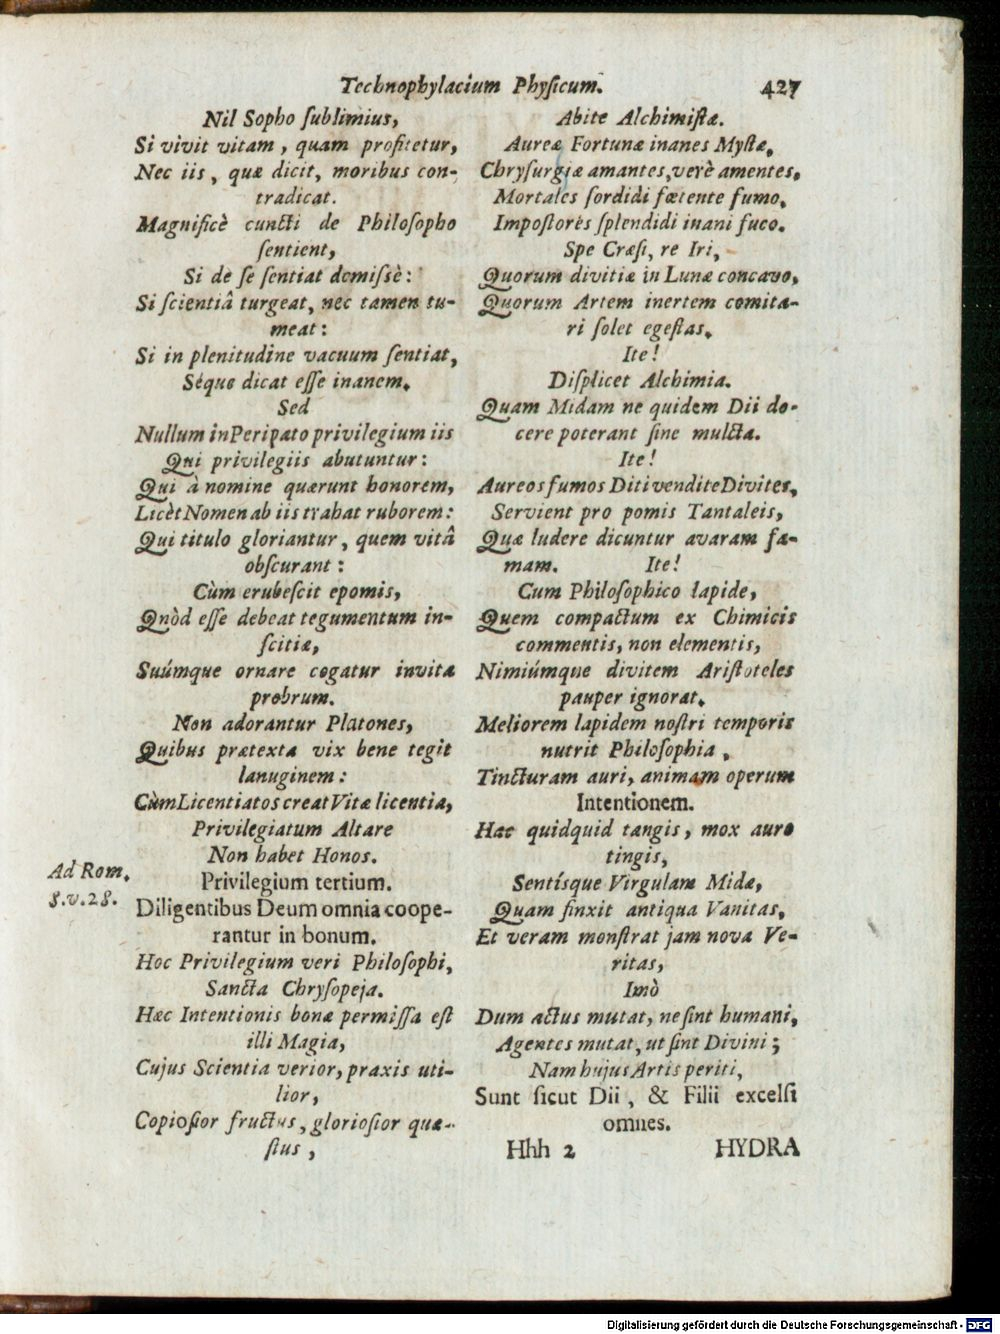 Technophylacium Physicum. 427
Nil Sopho ſublimius,
Si vivit vitam, quam profitetur,
Nec iis, quæ dicit, moribus con-
tradicat.
Magnificè cuncti de Philoſopho
ſentient,
Si de ſe ſentiat demiſsè:
Si ſcientiâ turgeat, nec tamen tu-
meat:
Si in plenitudine vacuum ſentiat,
Séque dicat eſſe inanem.
Sed
Nullum in Peripato privilegium iis
Qui privilegiis abutuntur:
Qui à nomine quærunt honorem,
Licèt Nomen ab iis trahat ruborem:
Qui titulo gloriantur, quem vitâ
obſcurant:
Cùm erubeſcit epomis,
Quòd eſſe debeat tegumentum in-
ſcitiæ,
Suúmque ornare cogatur invita
probrum.
Non adorantur Platones,
Quibus prætexta vix bene tegit
lanuginem:
Cùm Licentiatos creat Vitæ licentia,
Privilegiatum Altare
Non habet Honos.
Privilegium tertium.
Ad Rom.
8.v.28.
Diligentibus Deum omnia coope-
rantur in bonum.
Hoc Privilegium veri Philoſophi,
Sancta Chryſopeja.
Hæc Intentionis bonæ permiſſa eſt
illi Magia,
Cujus Scientia verior, praxis uti-
lior,
Copioſior fructus, glorioſior quæ-
ſtus,
Abite Alchimiſtæ.
Aureæ Fortunæ inanes Myſtæ,
Chryſurgiæ amantes, verè amentes,
Mortales ſordidi fœtente fumo,
Impoſtores ſplendidi inani fuco.
Spe Cræſi, re Iri,
Quorum divitiæ in Lunæ concavo,
Quorum Artem inertem comita-
ri ſolet egeſtas.
Ite!
Diſplicet Alchimia.
Quam Midam ne quidem Dii do-
cere poterant ſine mulcta.
Ite!
Aureos fumos Diti vendite Divites,
Servient pro pomis Tantaleis,
Quæ ludere dicuntur avaram fa-
mam. Ite!
Cum Philoſophico lapide,
Quem compactum ex Chimicis
commentis, non elementis,
Nimiúmque divitem Ariſtoteles
pauper ignorat.
Meliorem lapidem noſtri temporis
nutrit Philoſophia,
Tincturam auri, animam operum
Intentionem.
Hac quidquid tangis, mox auro
tingis,
Sentíſque Virgulam Midæ,
Quam finxit antiqua Vanitas,
Et veram monſtrat jam nova Ve-
ritas,
Imò
Dum actus mutat, ne ſint humani,
Agentes mutat, ut ſint Divini;
Nam hujus Artis periti,
Sunt ſicut Dii, & Filii excelſi
omnes.
Hhh 2 HYDRA
Digitalisierung gefördert durch die Deutsche Forschungsgemeinschaft - DFG